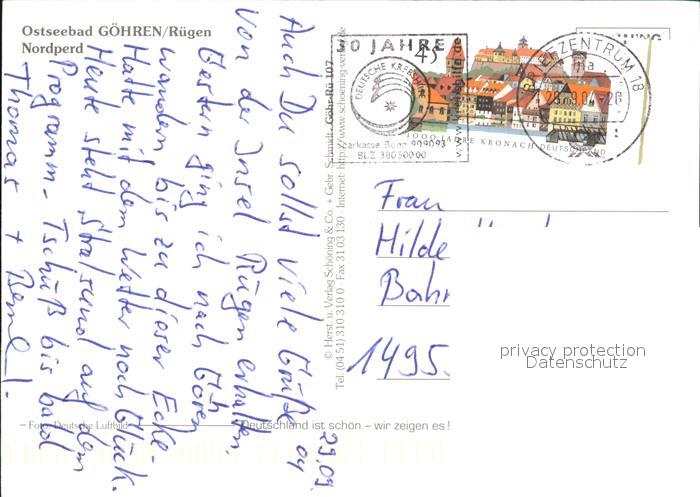 Ostseebad GÖHREN/Rügen
Nordperd
29.09.
04
Auch Du sollst viele Grüße
von der Insel Rügen erhalten.
Gestern ging ich nach Göhren
wandern bis zu dieser Ecke.
Hatte mit dem Wetter noch Glück.
Heute steht Stralsund auf dem
Programm - Tschüß bis bald
Thomas + Bernd.
– Foto: Deutsche Luftbild
Deutschland ist schön – wir zeigen es!
© Herst. u. Verlag Schöning & Co. + Gebr. Schmidt · Göhr Rü 107
Tel. (04 51) 310 310 0 · Fax 31 03 130 · Internet: http://www.schoening-verlag.de
30 JAHRE
DEUTSCHE KREBSHILFE
Sparkasse Bonn 909093
BLZ 38050000
45
1000 JAHRE KRONACH DEUTSCHLAND
BRIEFZENTRUM 18
Frau
Hilde
Bahn
1495.
privacy protection
Datenschutz